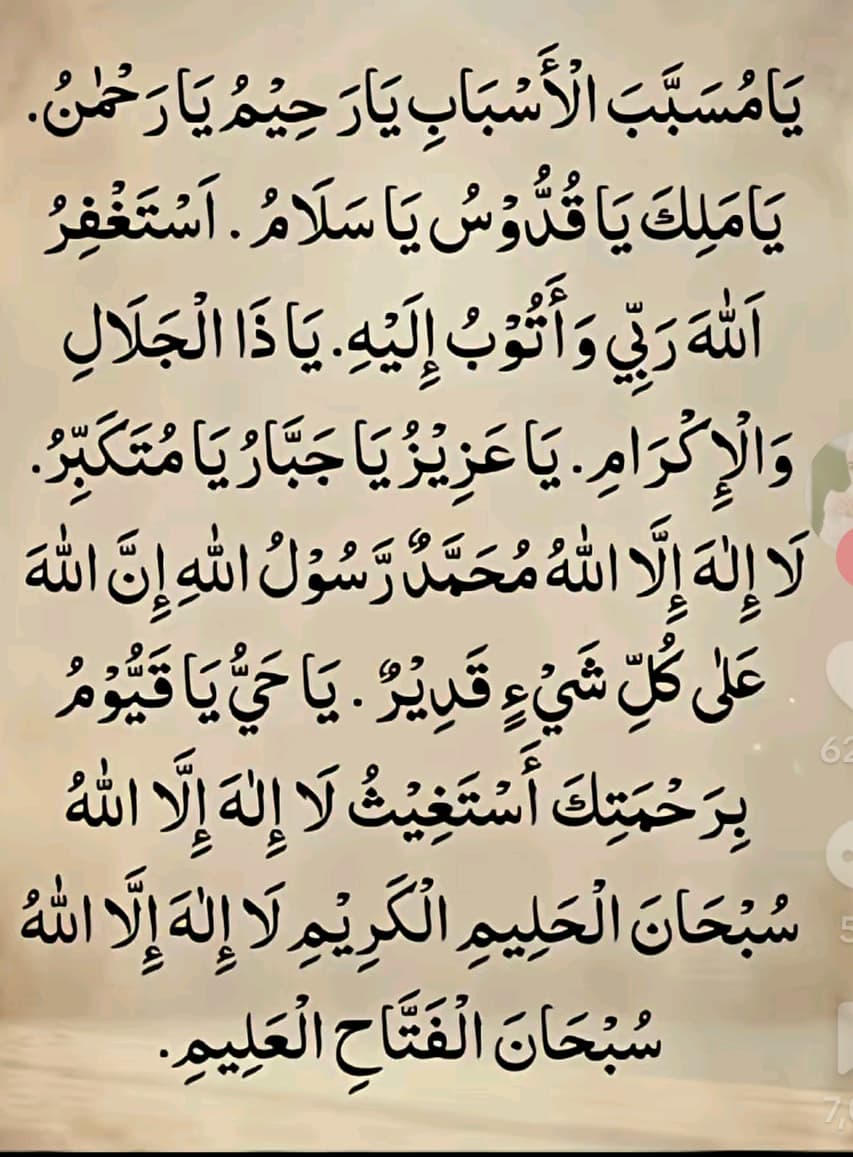 يَا مُسَبَّبَ الْأَسْبَابِ يَا رَحِيْمُ يَا رَحْمٰنُ.
يَا مَلِكَ يَا قُدُّوْسُ يَا سَلَامُ. اَسْتَغْفِرُ
اَللّٰهَ رَبِّي وَأَتُوْبُ إِلَيْهِ. يَا ذَا الْجَلَالِ
وَالْإِكْرَامِ. يَا عَزِيْزُ يَا جَبَّارُ يَا مُتَكَبِّرُ.
لَا إِلٰهَ إِلَّا اللّٰهُ مُحَمَّدٌ رَّسُوْلُ اللّٰهِ إِنَّ اللّٰهَ
عَلٰى كُلِّ شَيْءٍ قَدِيْرٌ. يَا حَيُّ يَا قَيُّوْمُ
بِرَحْمَتِكَ أَسْتَغِيْثُ لَا إِلٰهَ إِلَّا اللّٰهُ
سُبْحَانَ الْحَلِيمِ الْكَرِيْمِ لَا إِلٰهَ إِلَّا اللّٰهُ
سُبْحَانَ الْفَتَّاحِ الْعَلِيمِ.